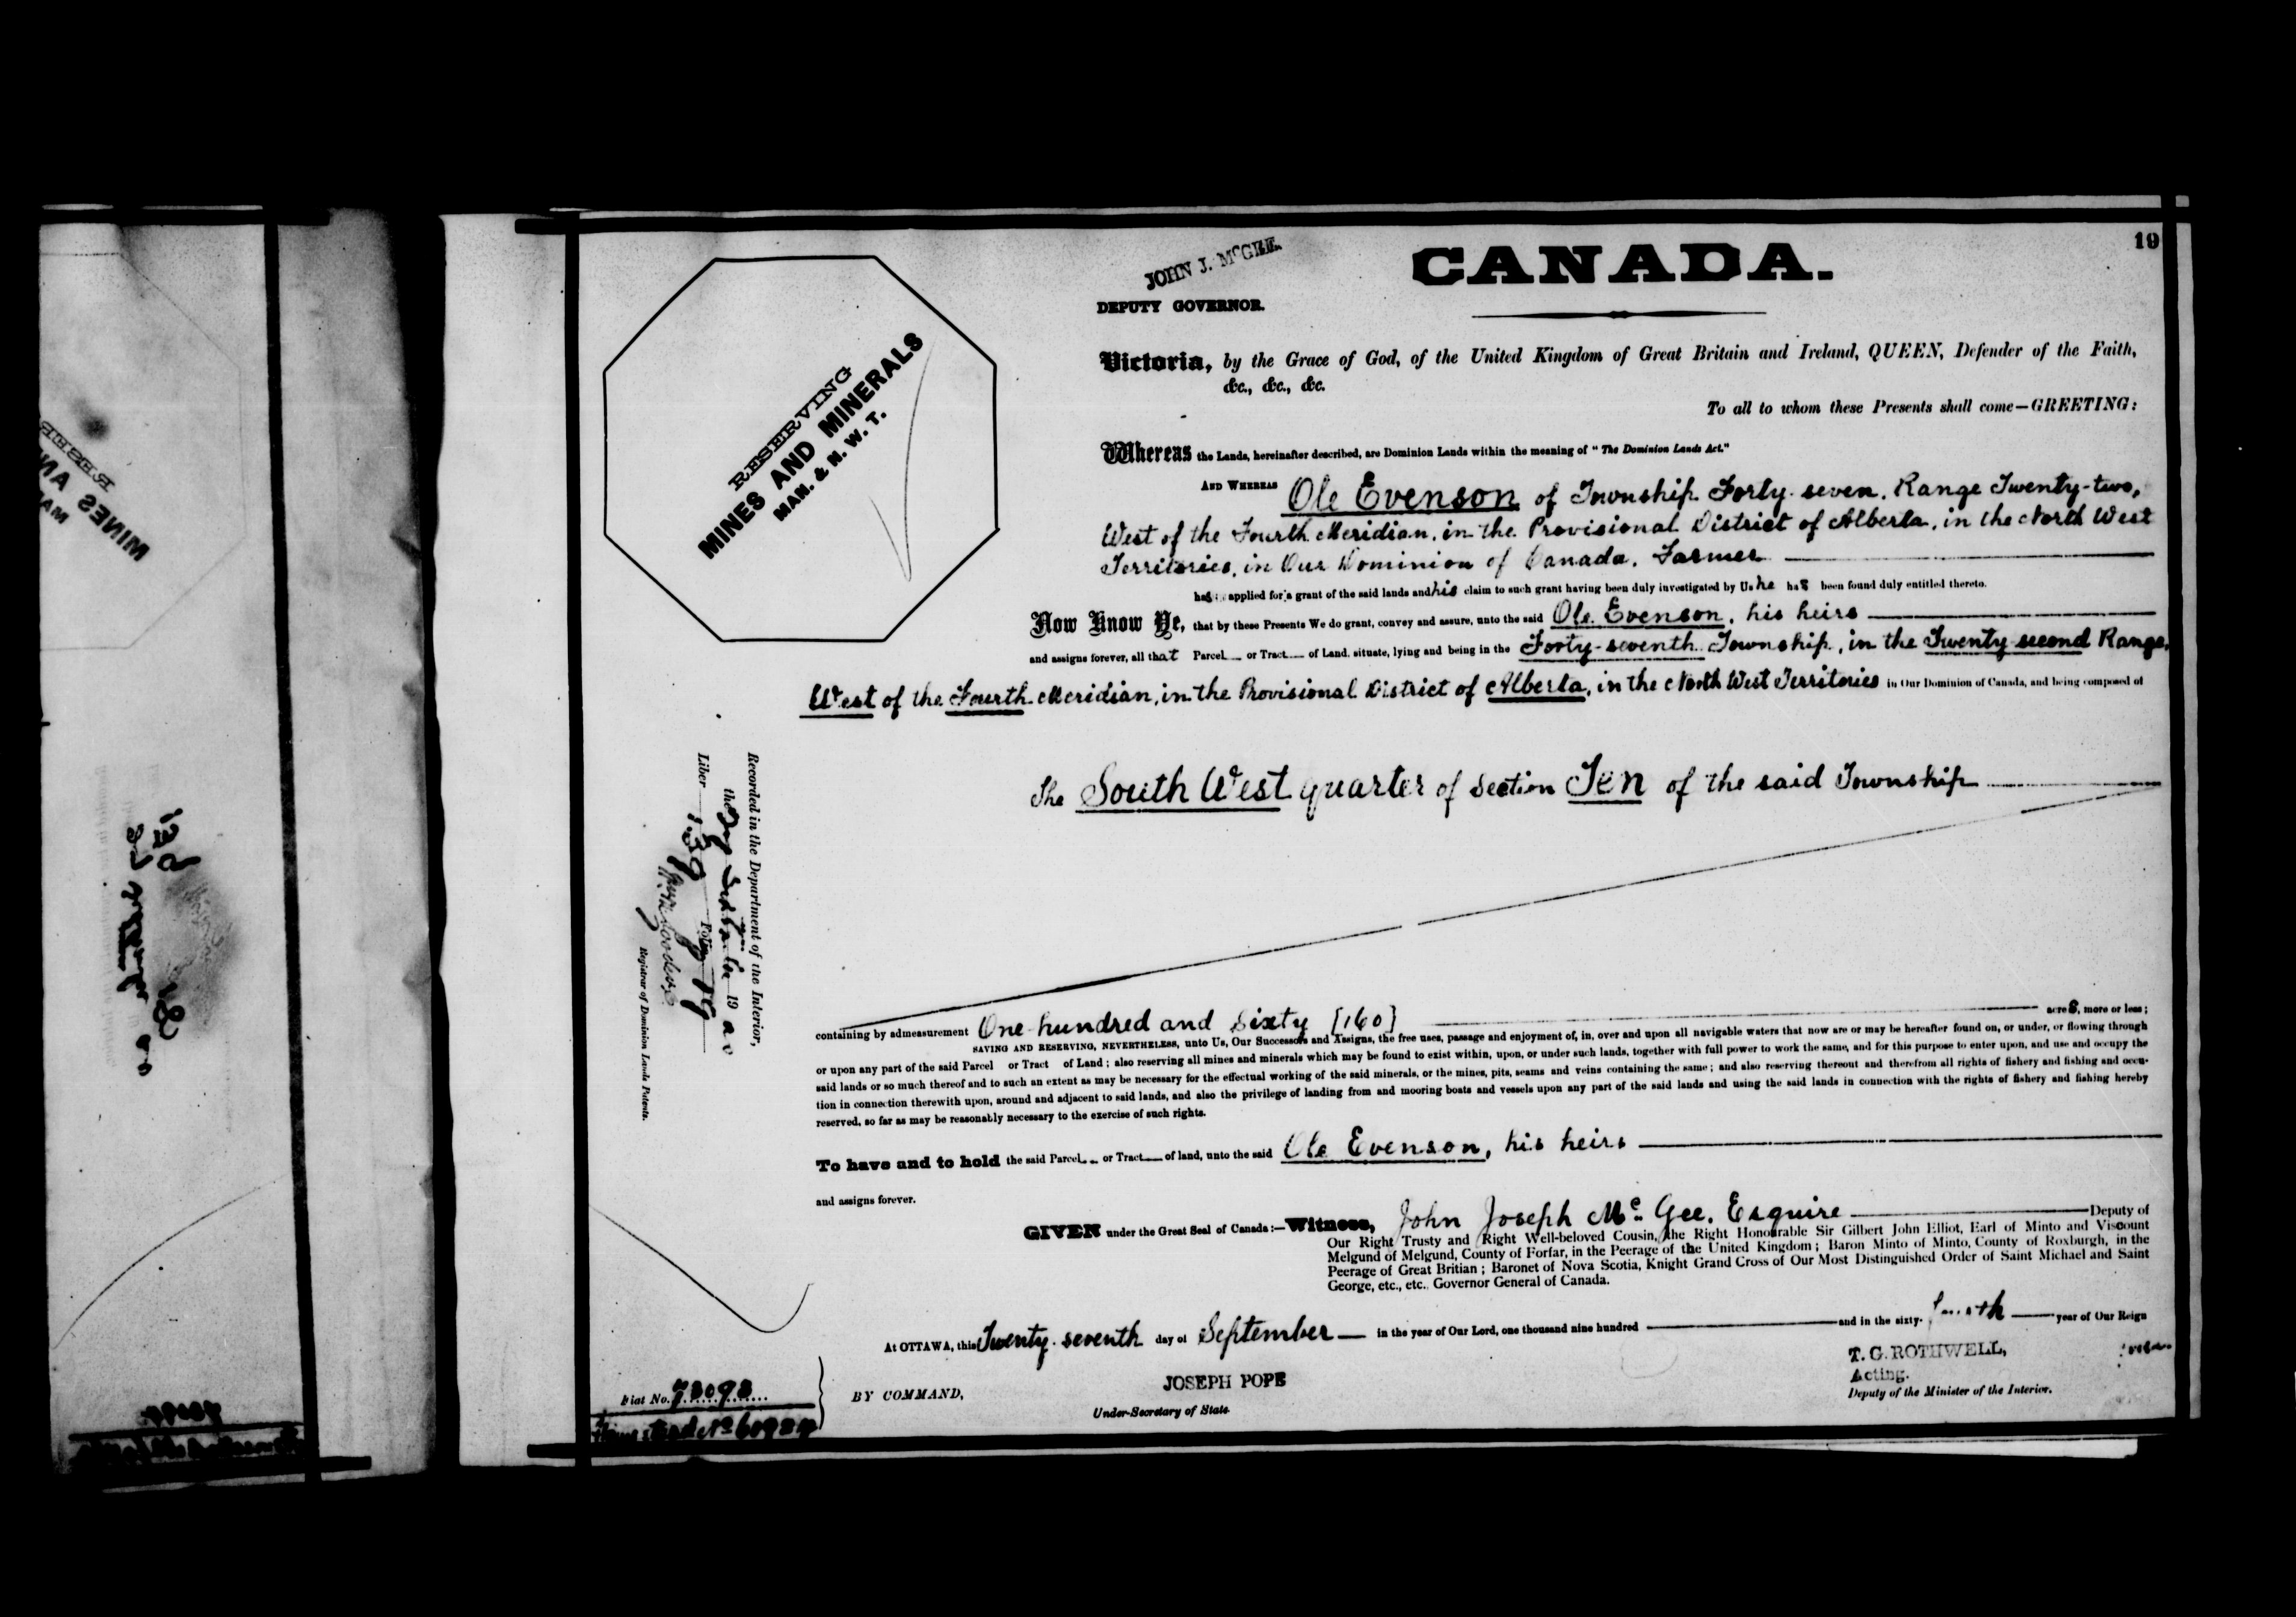 19
JOHN J. McGEE.
DEPUTY GOVERNOR.
CANADA.
RESERVING
MINES AND MINERALS
MAN. & N. W. T.
Victoria, by the Grace of God, of the United Kingdom of Great Britain and Ireland, QUEEN, Defender of the Faith,
&c., &c., &c.
To all to whom these Presents shall come—GREETING:
Whereas the Lands, hereinafter described, are Dominion Lands within the meaning of "The Dominion Lands Act."
AND WHEREAS Ole Evenson of Township Forty-seven, Range Twenty-two,
West of the Fourth Meridian, in the Provisional District of Alberta, in the North West
Territories, in Our Dominion of Canada, Farmer
has applied for a grant of the said lands and his claim to such grant having been duly investigated by Us he has been found duly entitled thereto.
Now Know Ye, that by these Presents We do grant, convey and assure, unto the said Ole Evenson, his heirs
and assigns forever, all that Parcel or Tract of Land, situate, lying and being in the Forty-seventh Township, in the Twenty-second Range,
West of the Fourth Meridian, in the Provisional District of Alberta, in the North West Territories in Our Dominion of Canada, and being composed of
The South West quarter of Section Ten of the said Township
Recorded in the Department of the Interior,
the 19
Liber 139 Folio 19
Registrar of Dominion Lands Patents.
containing by admeasurement One hundred and Sixty [160] acres, more or less;
SAVING AND RESERVING, NEVERTHELESS, unto Us, Our Successors and Assigns, the free uses, passage and enjoyment of, in, over and upon all navigable waters that now are or may be hereafter found on, or under, or flowing through
or upon any part of the said Parcel or Tract of Land; also reserving all mines and minerals which may be found to exist within, upon, or under such lands, together with full power to work the same, and for this purpose to enter upon, and use and occupy the
said lands or so much thereof and to such an extent as may be necessary for the effectual working of the said minerals, or the mines, pits, seams and veins containing the same; and also reserving thereout and therefrom all rights of fishery and fishing and occu-
tion in connection therewith upon, around and adjacent to said lands, and also the privilege of landing from and mooring boats and vessels upon any part of the said lands and using the said lands in connection with the rights of fishery and fishing hereby
reserved, so far as may be reasonably necessary to the exercise of such rights.
To have and to hold the said Parcel or Tract of land, unto the said Ole Evenson, his heirs
and assigns forever.
GIVEN under the Great Seal of Canada:—Witness, John Joseph McGee, Esquire Deputy of
Our Right Trusty and Right Well-beloved Cousin, the Right Honourable Sir Gilbert John Elliot, Earl of Minto and Viscount
Melgund of Melgund, County of Forfar, in the Peerage of the United Kingdom; Baron Minto of Minto, County of Roxburgh, in the
Peerage of Great Britian; Baronet of Nova Scotia, Knight Grand Cross of Our Most Distinguished Order of Saint Michael and Saint
George, etc., etc. Governor General of Canada.
At OTTAWA, this Twenty-seventh day of September in the year of Our Lord, one thousand nine hundred and in the sixty-fourth year of Our Reign
BY COMMAND,
JOSEPH POPE
Under-Secretary of State.
T. G. ROTHWELL,
Acting.
Deputy of the Minister of the Interior.
Fiat No. 73093
Homestead No